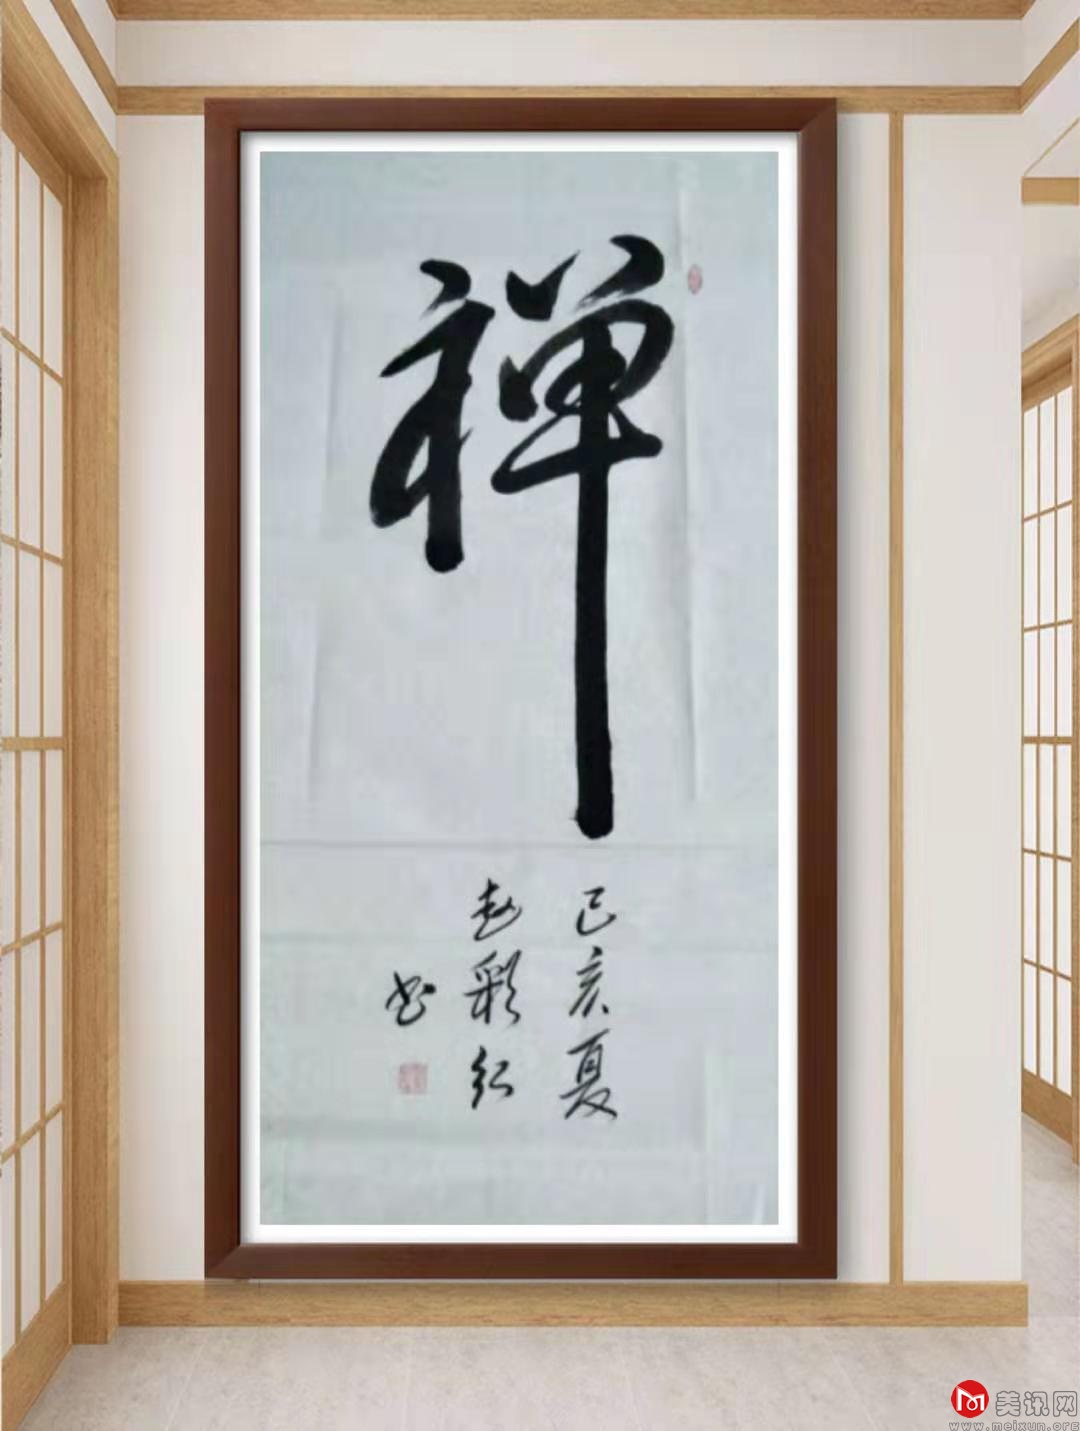 禅
己亥夏
赵彩红
书
美讯网
www.meixun.org